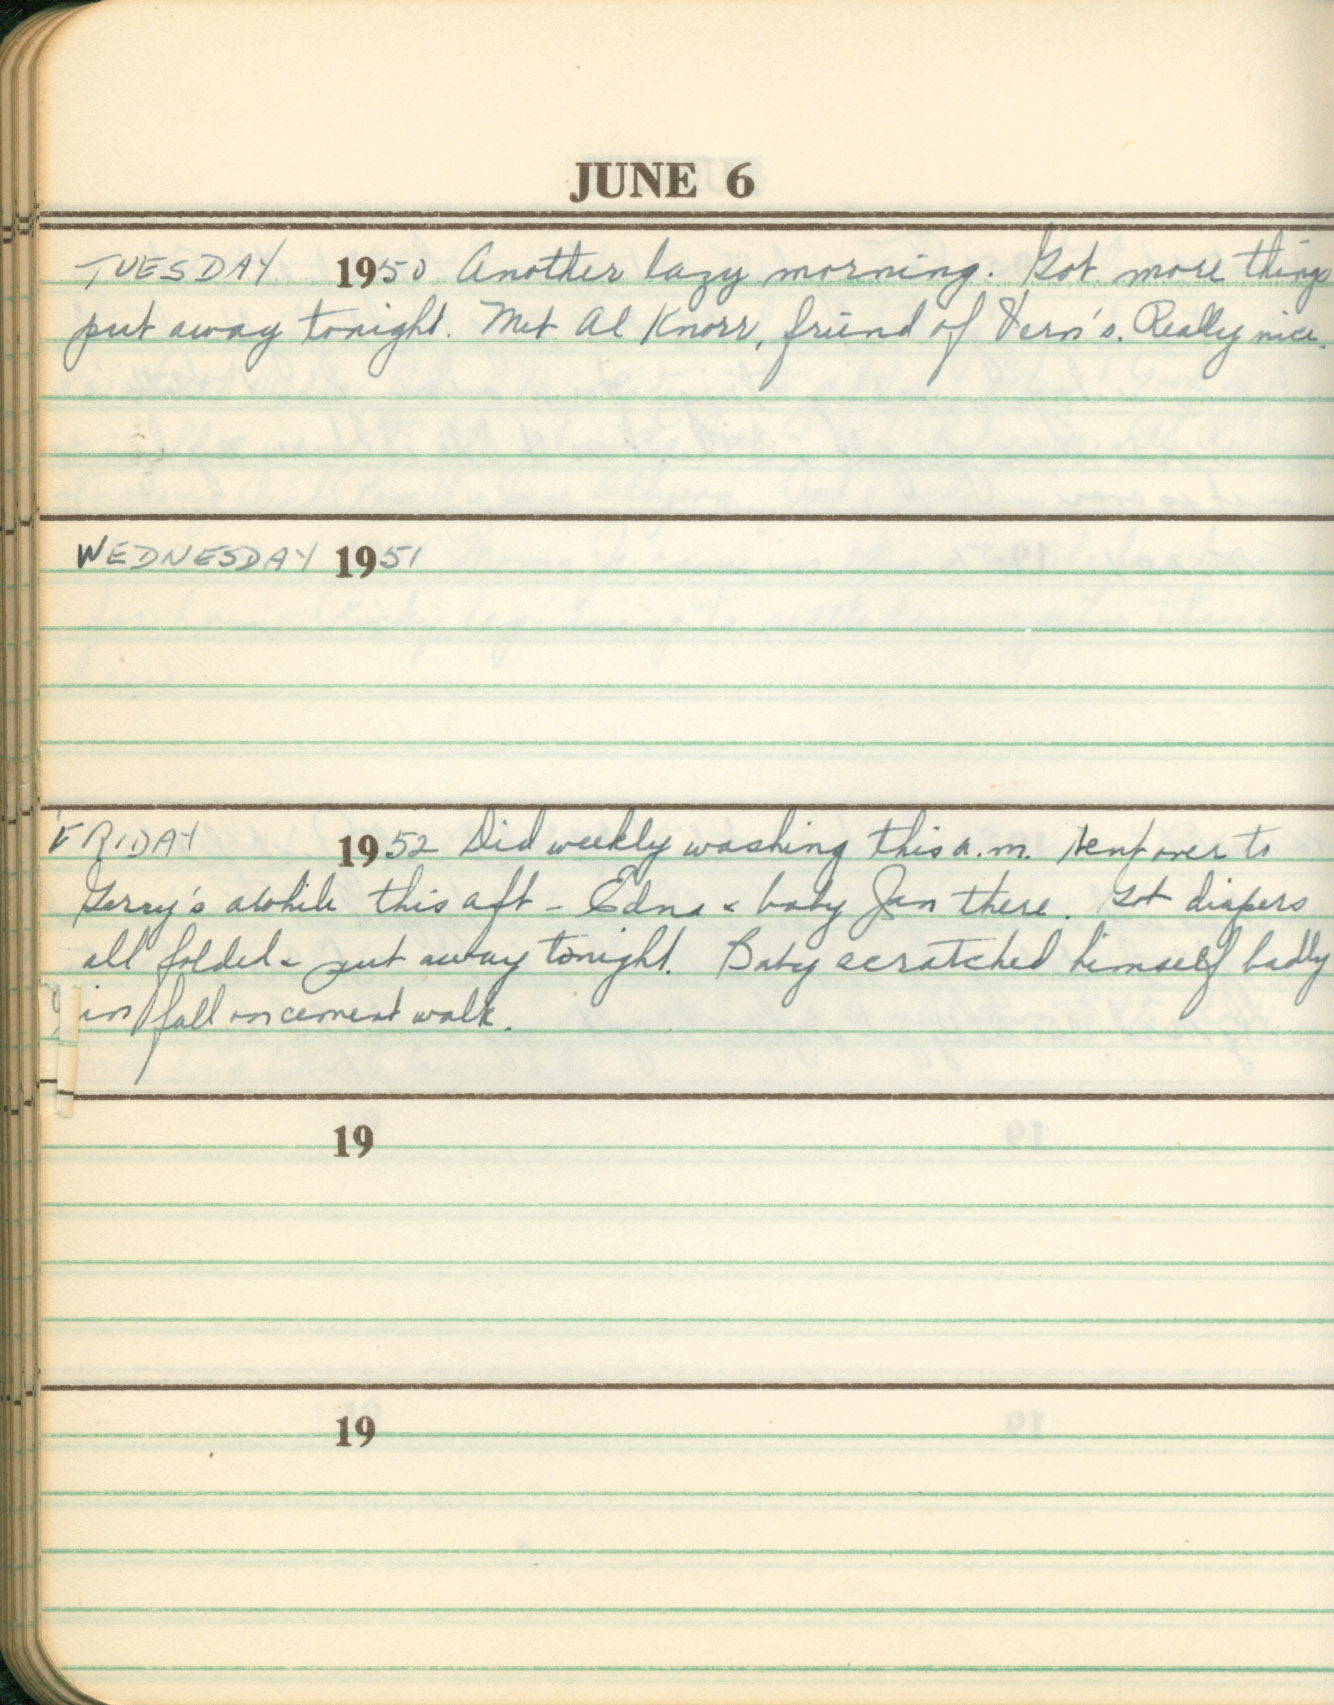 JUNE 6
TUESDAY 1950 Another lazy morning. Got more things
put away tonight. Met Al Knorr, friend of Vern's. Really nice.
WEDNESDAY 1951
FRIDAY 1952 Did weekly washing this a.m. Went over to
Gerry's awhile this aft - Edna & baby Jan there. Got diapers
all folded & put away tonight. Baby scratched himself badly
in fall on cement walk.
19
19